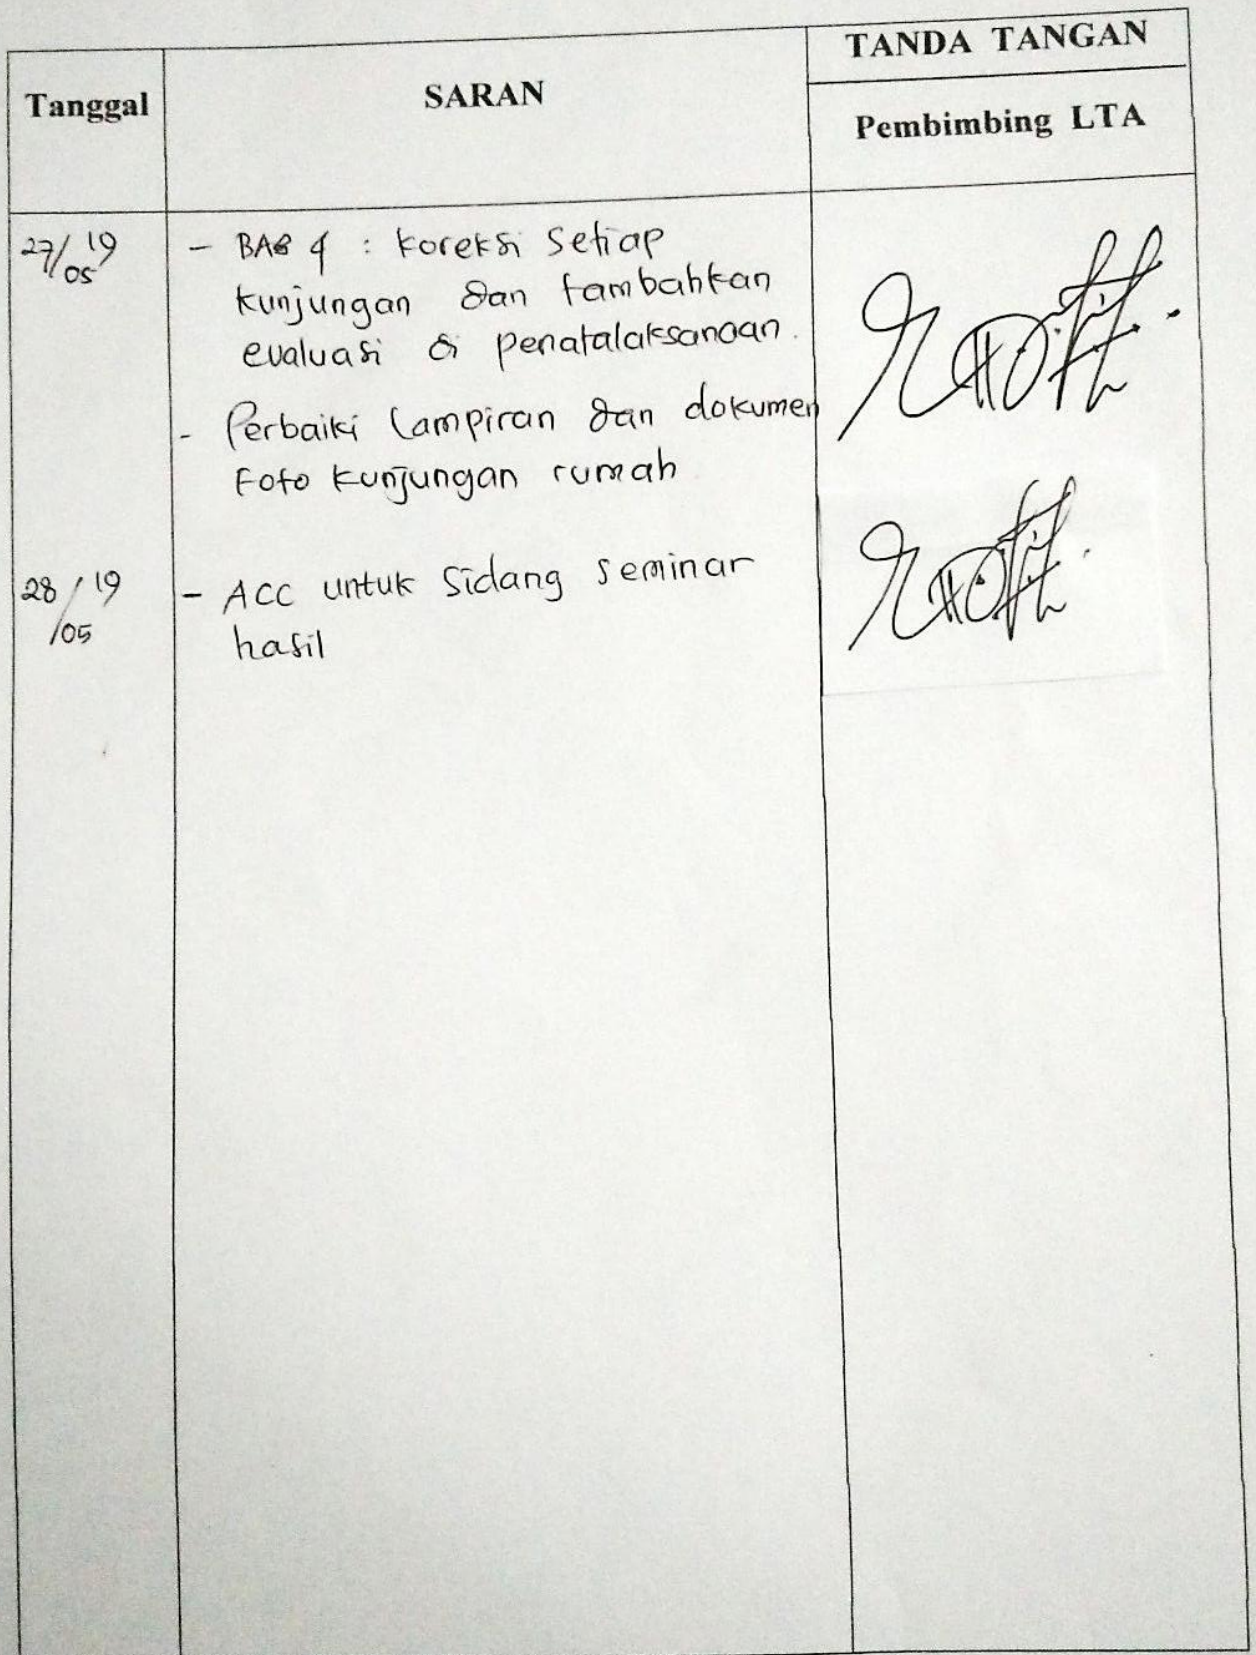 TANDA TANGAN
Tanggal
SARAN
Pembimbing LTA
27/05 19
- BAB 4 : koreksi setiap
kunjungan dan tambahkan
evaluasi di penatalaksanaan.
- Perbaiki lampiran dan dokumen
Foto kunjungan rumah
28/05 19
- ACC untuk Sidang seminar
hasil